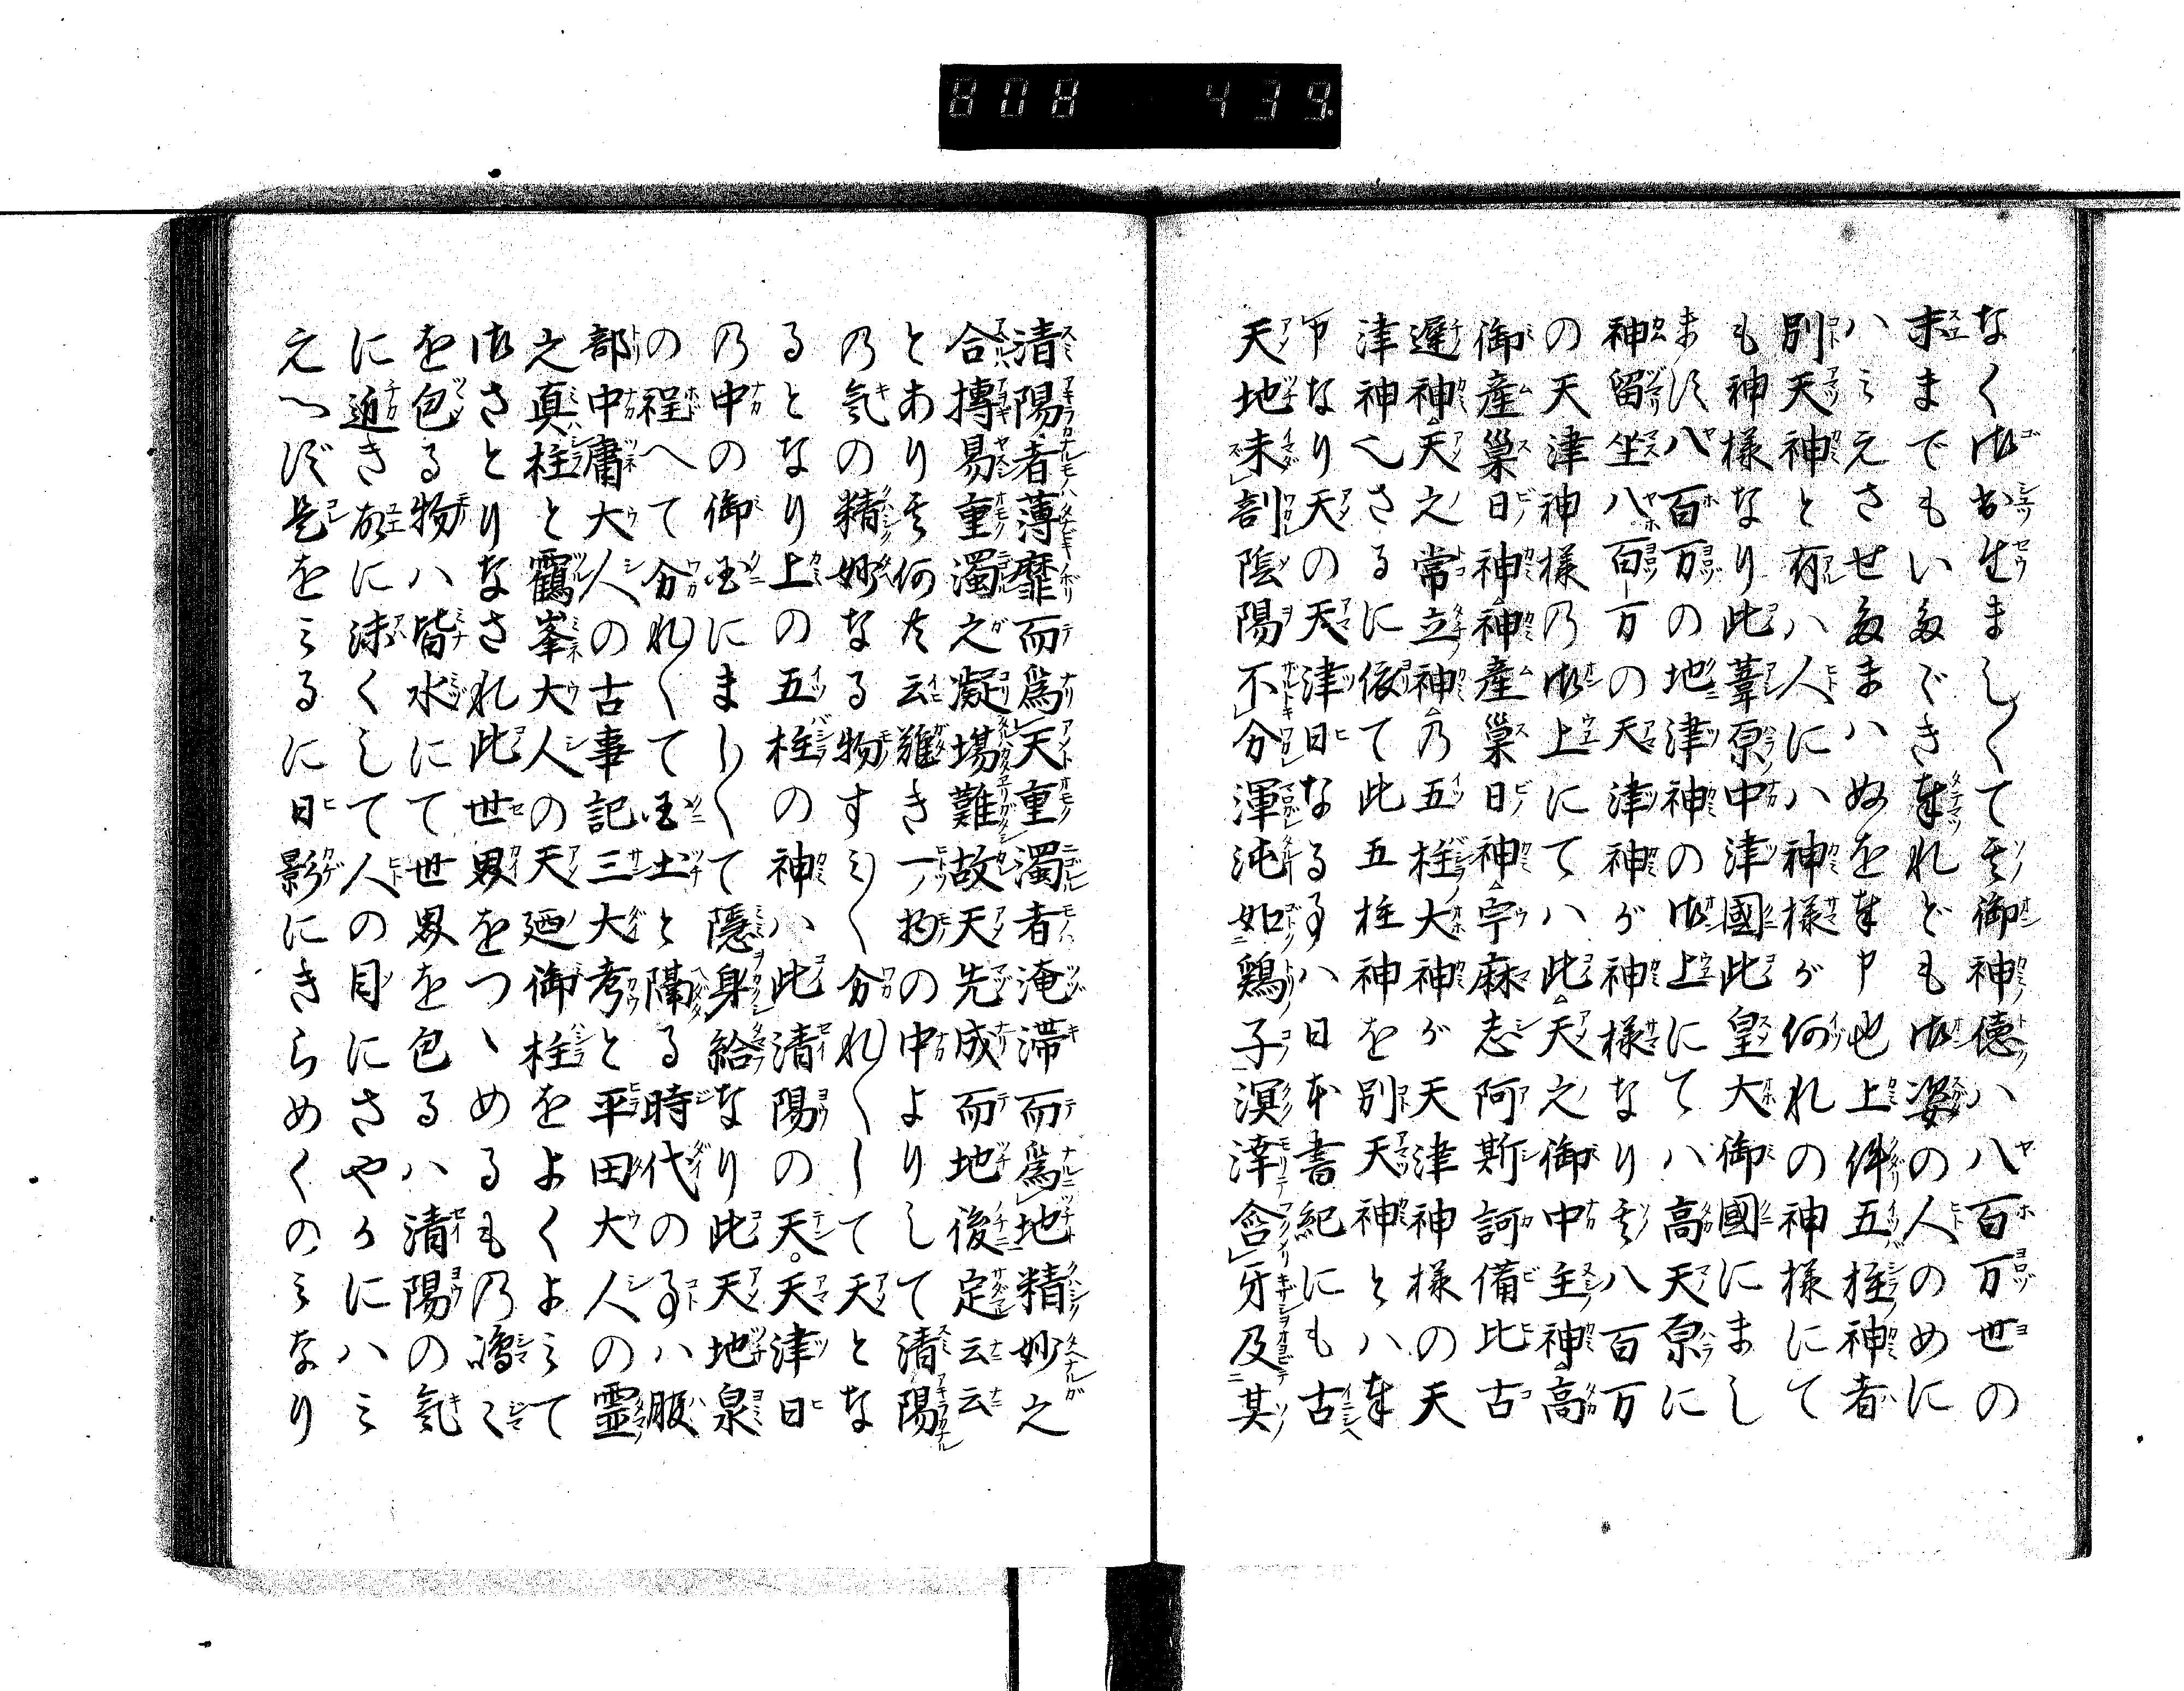 808 439
なく御出生まし〱て其御神徳ハ八百万世の
末までもいたゞき奉れども御姿の人のめに
ハミえさせ給まハぬを奉申也上件五柱神者
別天神と有ハ人にハ神様ガ何れの神様にて
も神様なり此葦原中津國此皇大御國にまし
ます八百万の地津神の御上にてハ高天原に
神留坐八百万の天津神ガ神様なり其八百万
の天津神様乃御上にてハ此天之御中主神高
御産巣日神神産巣日神宇麻志阿斯訶備比古
遅神天之常立神乃五柱大神ガ天津神様の天
津神へさるに依て此五柱神を別天神とハ奉
申なり天の天津日なる事ハ日本書紀にも古
天地未剖陰陽不分渾沌如鶏子溟涬含牙及其
清陽者薄靡而為天重濁者淹滞而為地精妙之
合摶易重濁之凝場難故天先成而地後定云云
とあり其何共云難き一物の中よりして清陽
乃気の精妙なる物すミ〱分れ〱して天とな
るとなり上の五柱の神ハ此清陽の天。天津日
乃中の御国にまし〱て隠身給なり此天地泉
の程へて分れ〱て国土と隔る時代の事ハ服
部中庸大人の古事記三大考と平田大人の霊
之真柱と鶴峯大人の天廼御柱をよくよミて
御さとりなされ此世界をつゝめるもの乃嶋〻
を包る物ハ皆水にて世界を包るハ清陽の気
に近き故に淡くして人の目にさやかにハミ
えへず是をミるに日影にきらめくのミなり